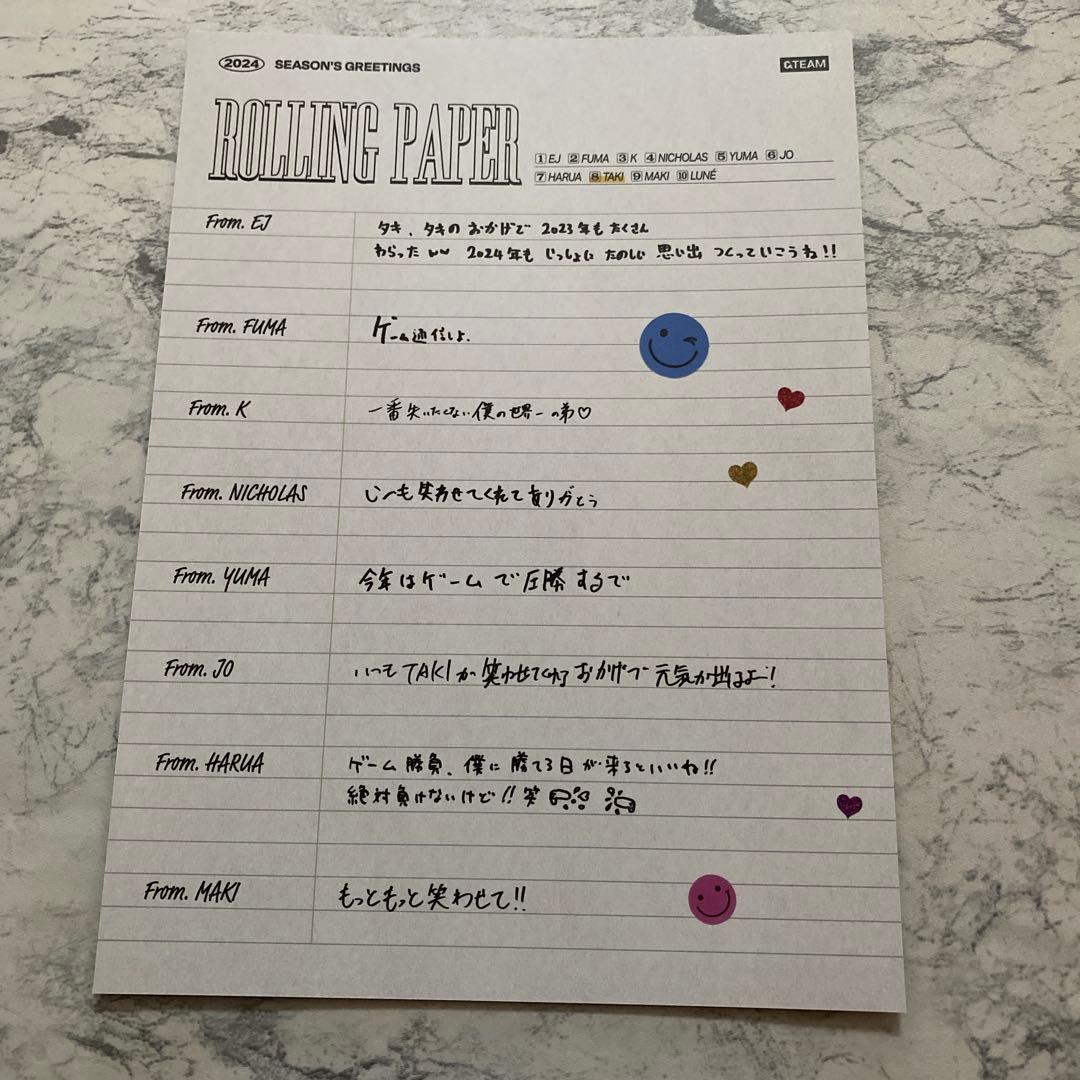 2024 SEASON'S GREETINGS
&TEAM
ROLLING PAPER
1 EJ 2 FUMA 3 K 4 NICHOLAS 5 YUMA 6 JO
7 HARUA 8 TAKI 9 MAKI 10 LUNÉ
From. EJ
タキ、タキのおかげで 2023年もたくさん
わらった ww 2024年も いっしょに たのしい 思い出 つくっていこうね!!
From. FUMA
ゲーム通信しよ.
From. K
一番失いたくない僕の世界一の弟♡
From. NICHOLAS
いつも笑わせてくれてありがとう
From. YUMA
今年はゲームで圧勝するで
From. JO
いつもTAKIが笑わせてくれるおかげで元気が出るよー!
From. HARUA
ゲーム勝負、僕に勝てる日が来るといいね!!
絶対負けないけど!!笑
From. MAKI
もっともっと笑わせて!!